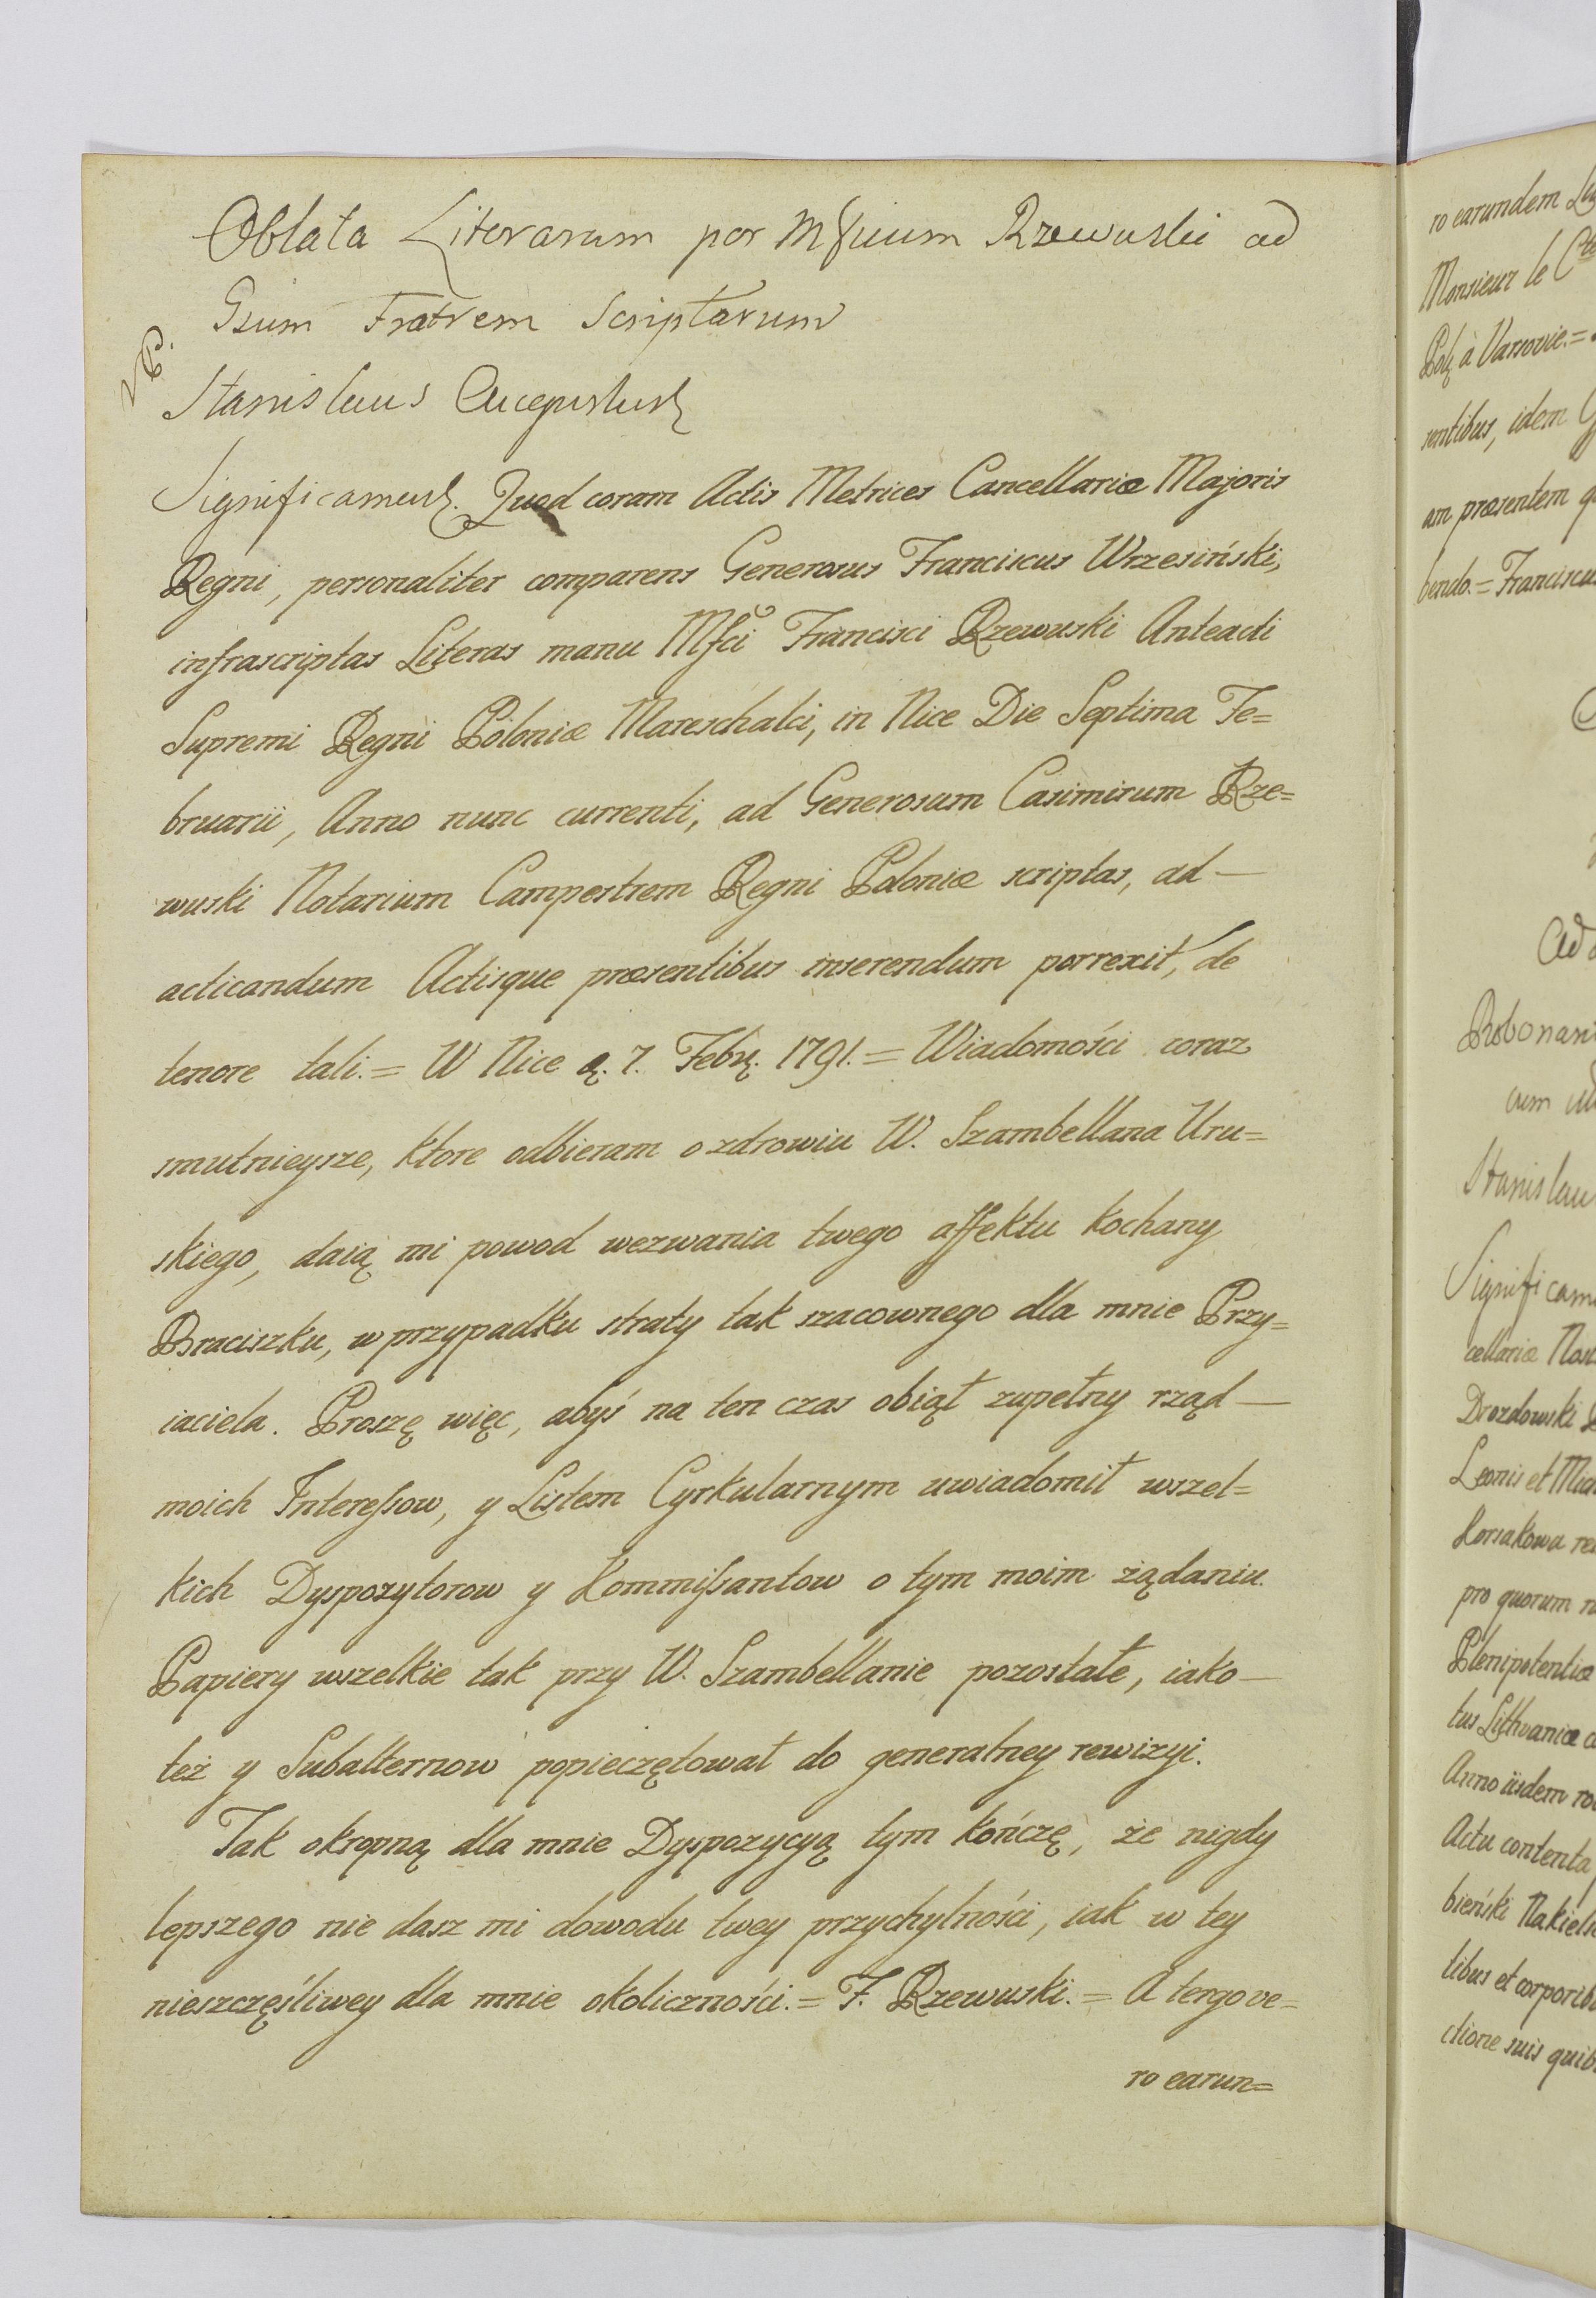 Oblata Literarum per Mfcum Rzewuski ad
Gsum Fratrem Scriptarum
Stanislaus Augustus
Significamus. Quod coram Actis Metrices Cancellariæ Majoris
Regni, personaliter comparens Generosus Franciscus Wrzesiński,
infrascriptas Literas manu Mfci Francisci Rzewuski Anteacti
Supremi Regni Poloniæ Mareschalci, in Nice Die Septima Fe=
bruarii, Anno nunc currenti, ad Generosum Casimirum Rze=
wuski Notarium Campestrem Regni Poloniæ scriptas, ad—
acticandum Actisque præsentibus inserendum porrexit, de
tenore tali.= W Nice 7. Febr. 1791.= Wiadomości coraz
smutnieysze, ktore odbieram o zdrowiu W. Szambellana Uru=
skiego, daią mi powod wezwania twego affektu kochany
Braciszku, w przypadku straty tak szacownego dla mnie Przy=
iaciela. Proszę więc, abyś na ten czas obiął zupełny rząd—
moich Interessow, y Listem Cyrkularnym uwiadomił wszel=
kich Dyspozytorow y Kommissantow o tym moim żądaniu.
Papiery wszelkie tak przy W. Szambellanie pozostałe, iako—
też y Subalternow popieczętował do generalney rewizyi.
Tak okropną dla mnie Dyspozycyą tym kończę, że nigdy
lepszego nie dasz mi dowodu twey przychylności, iak w tey
nieszczęśliwey dla mnie okoliczności.= F. Rzewuski.= A tergo ve=
ro earun=
ro earundem
Monsieur le Cte
Pol à Varsovie.=
rentibus, idem
am præsentem
bendo.= Franciscus
Ad
cum
Stanislau
Significam
cellariæ
Drozdowski
Leonis et
Korsakowa
pro quorum
Plenipotentiæ
tus Lithvaniæ
Anno iisdem
Actu contenta
bieński
tibus et
ctione suis